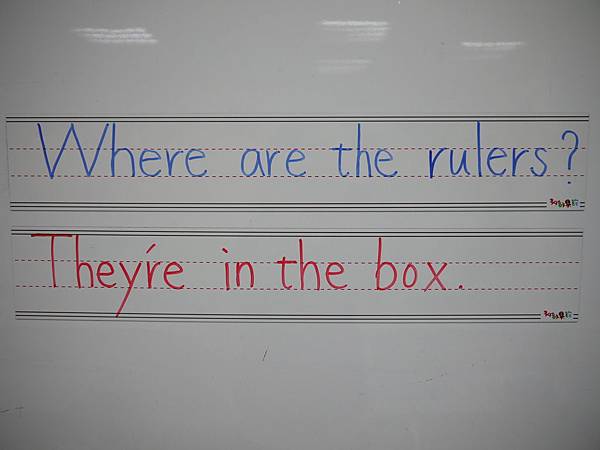 Where are the rulers?
They're in the box.